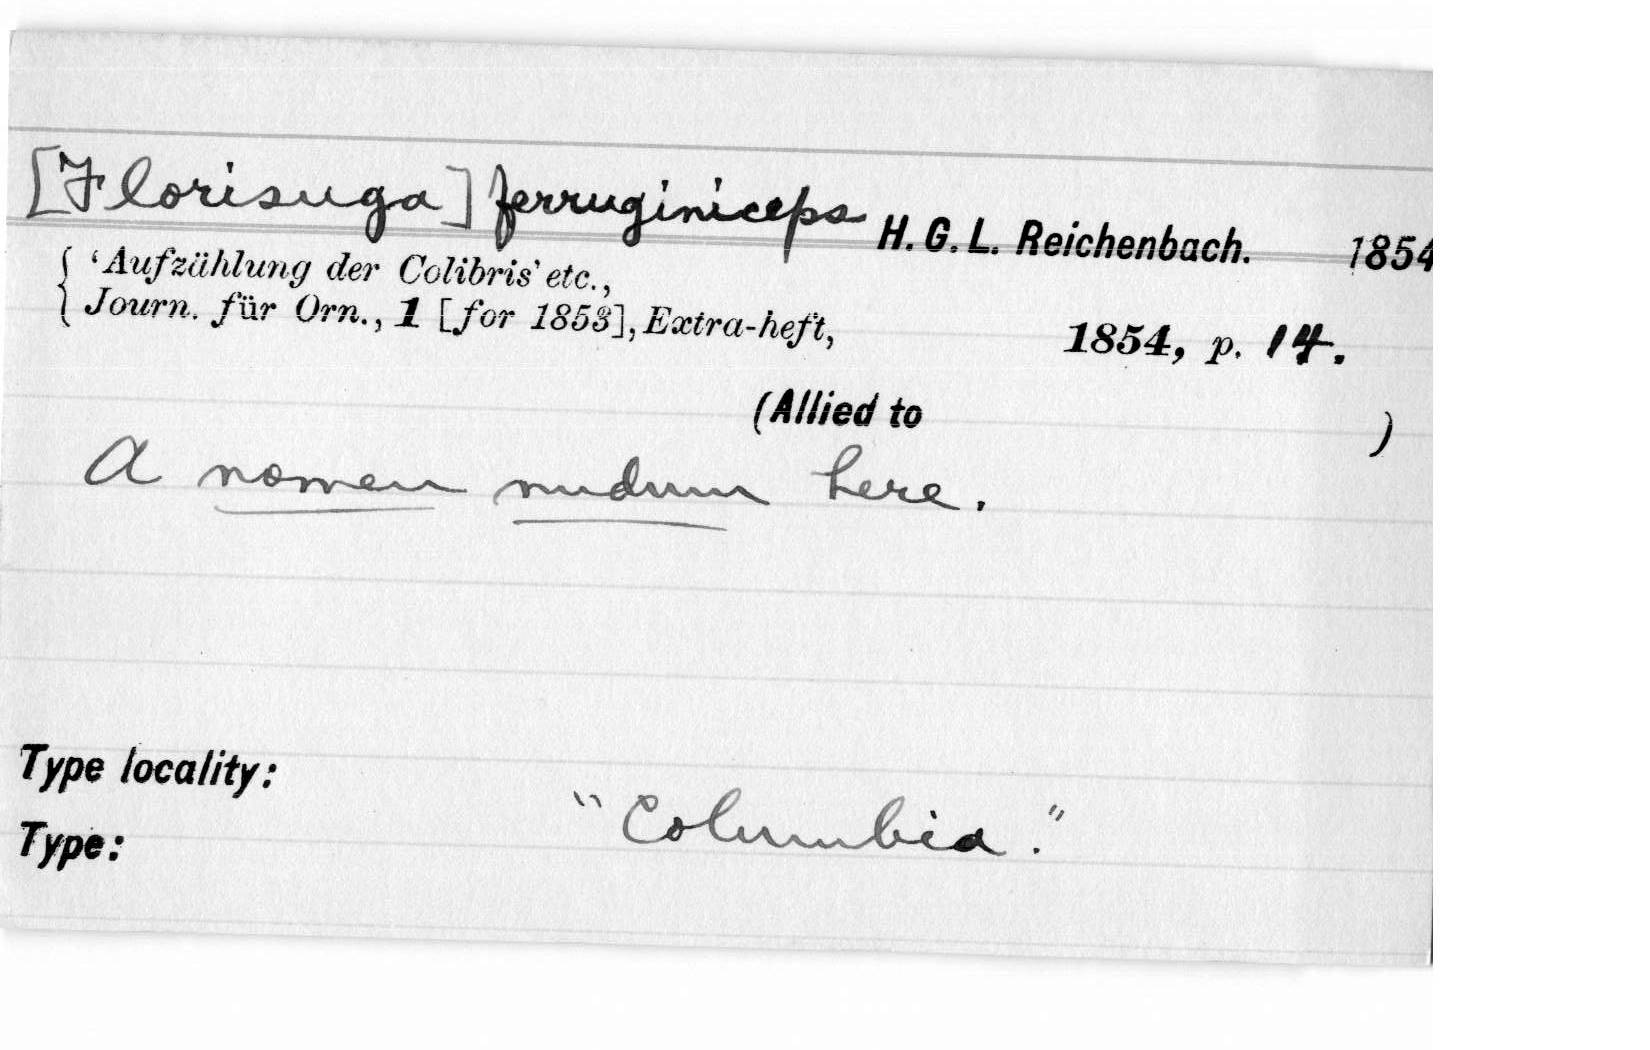 [Florisuga] ferruginiceps H. G. L. Reichenbach. 1854
{ 'Aufzählung der Colibris' etc.,
Journ. für Orn., 1 [for 1853], Extra-heft, 1854, p. 14.
(Allied to )
A nomen nudum here.
Type locality:
"Columbia."
Type: